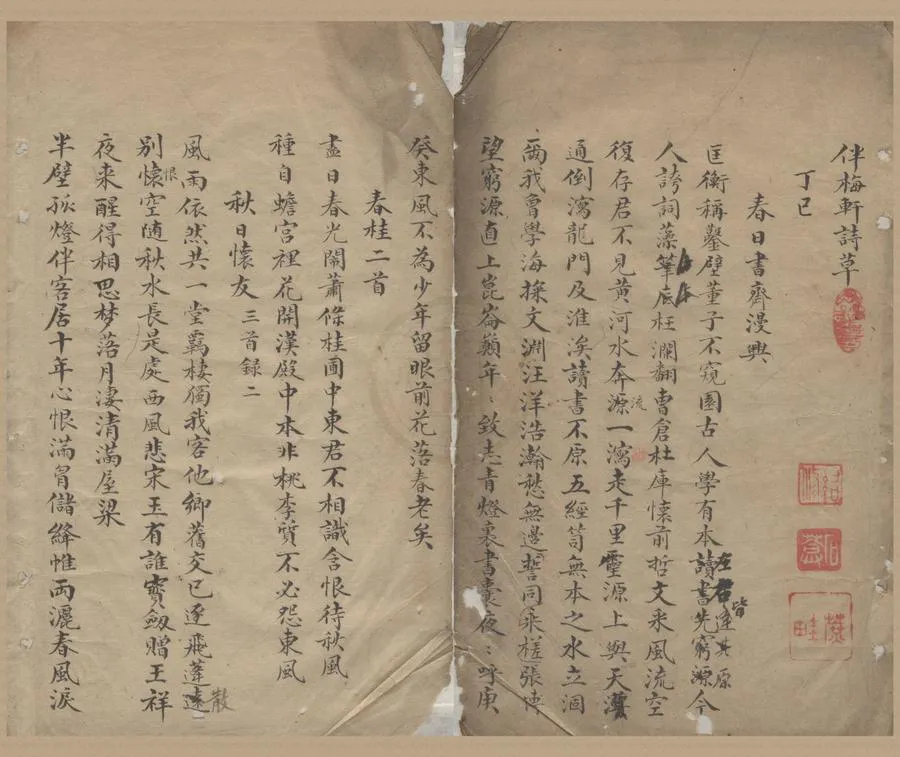 伴梅軒詩草
丁巳
春日書齋漫興
匡衡稱鑿壁董子不窺園古人學有本讀書先窮源今
左右皆逢其原
人誇詞藻筆底枉瀾翻曹倉杜庫懷前哲文采風流空
復存君不見黃河水奔源一瀉走千里靈源上與天漢
流
通倒瀉龍門及淮涘讀書不原五經笥無本之水立涸
爾我曾學海探文淵汪洋浩瀚愁無邊誓同乘槎張博
望窮源直上崑崙巔年〻致志青燈裏書囊夜〻呼庚
癸東風不為少年留眼前花落春老矣
春桂二首
盡日春光閙蕭條桂圃中東君不相識含恨待秋風
種自蟾宮裡花開漢殿中本非桃李質不必怨東風
秋日懷友三首錄二
風雨依然共一堂羈棲獨我客他鄉舊交已逐飛蓬遠
散
別懷空随秋水長是處西風悲宋玉有誰寶劒贈王祥
恨
夜来醒得相思梦落月淒清滿屋梁
半壁孤燈伴客居十年心恨滿胷儲絳帷雨灑春風淚